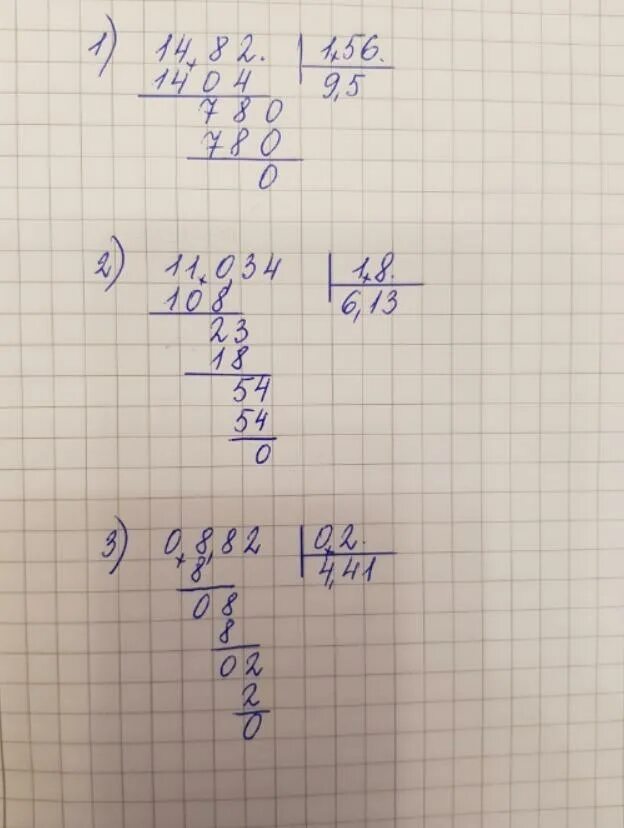 1) 14,82. 1,56.
1404 9,5
780
780
0
2) 11,034 1,8.
108 6,13
23
18
54
54
0
3) 0,8,82 0,2.
8 4,41
08
8
02
2
0